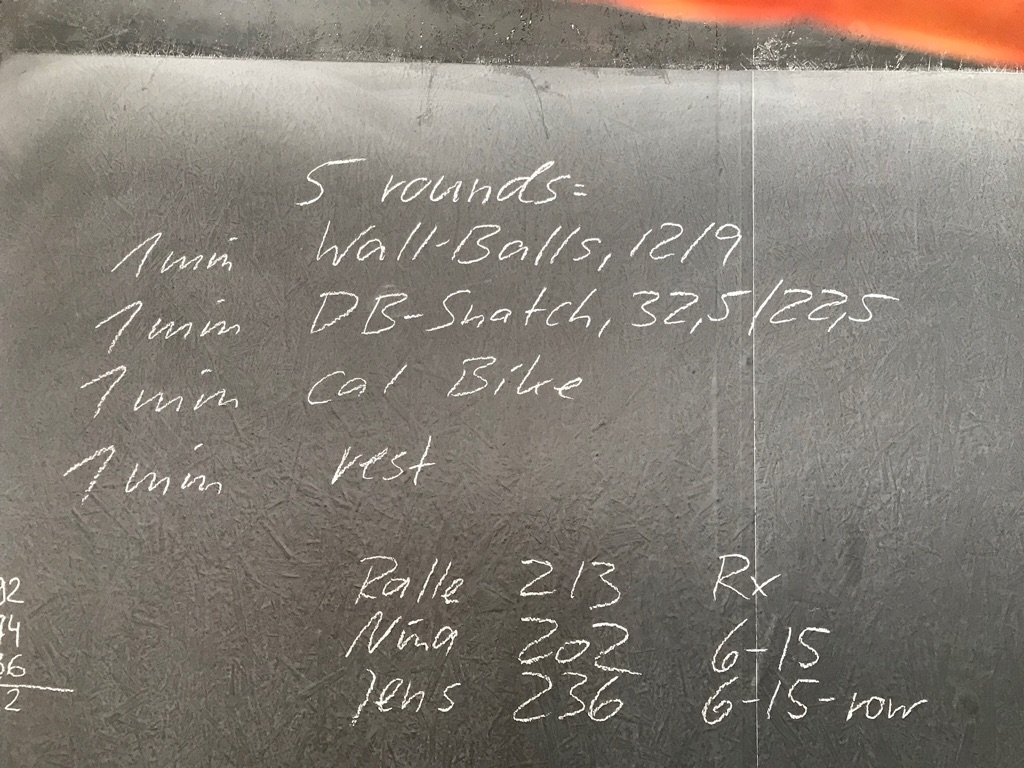 5 rounds=
1 min Wall-Balls, 12/9
1 min DB-Snatch, 32,5/22,5
1 min cal Bike
1 min rest
Ralle 213 Rx
Nina 202 6-15
Jens 236 6-15-row
92
74
36
2